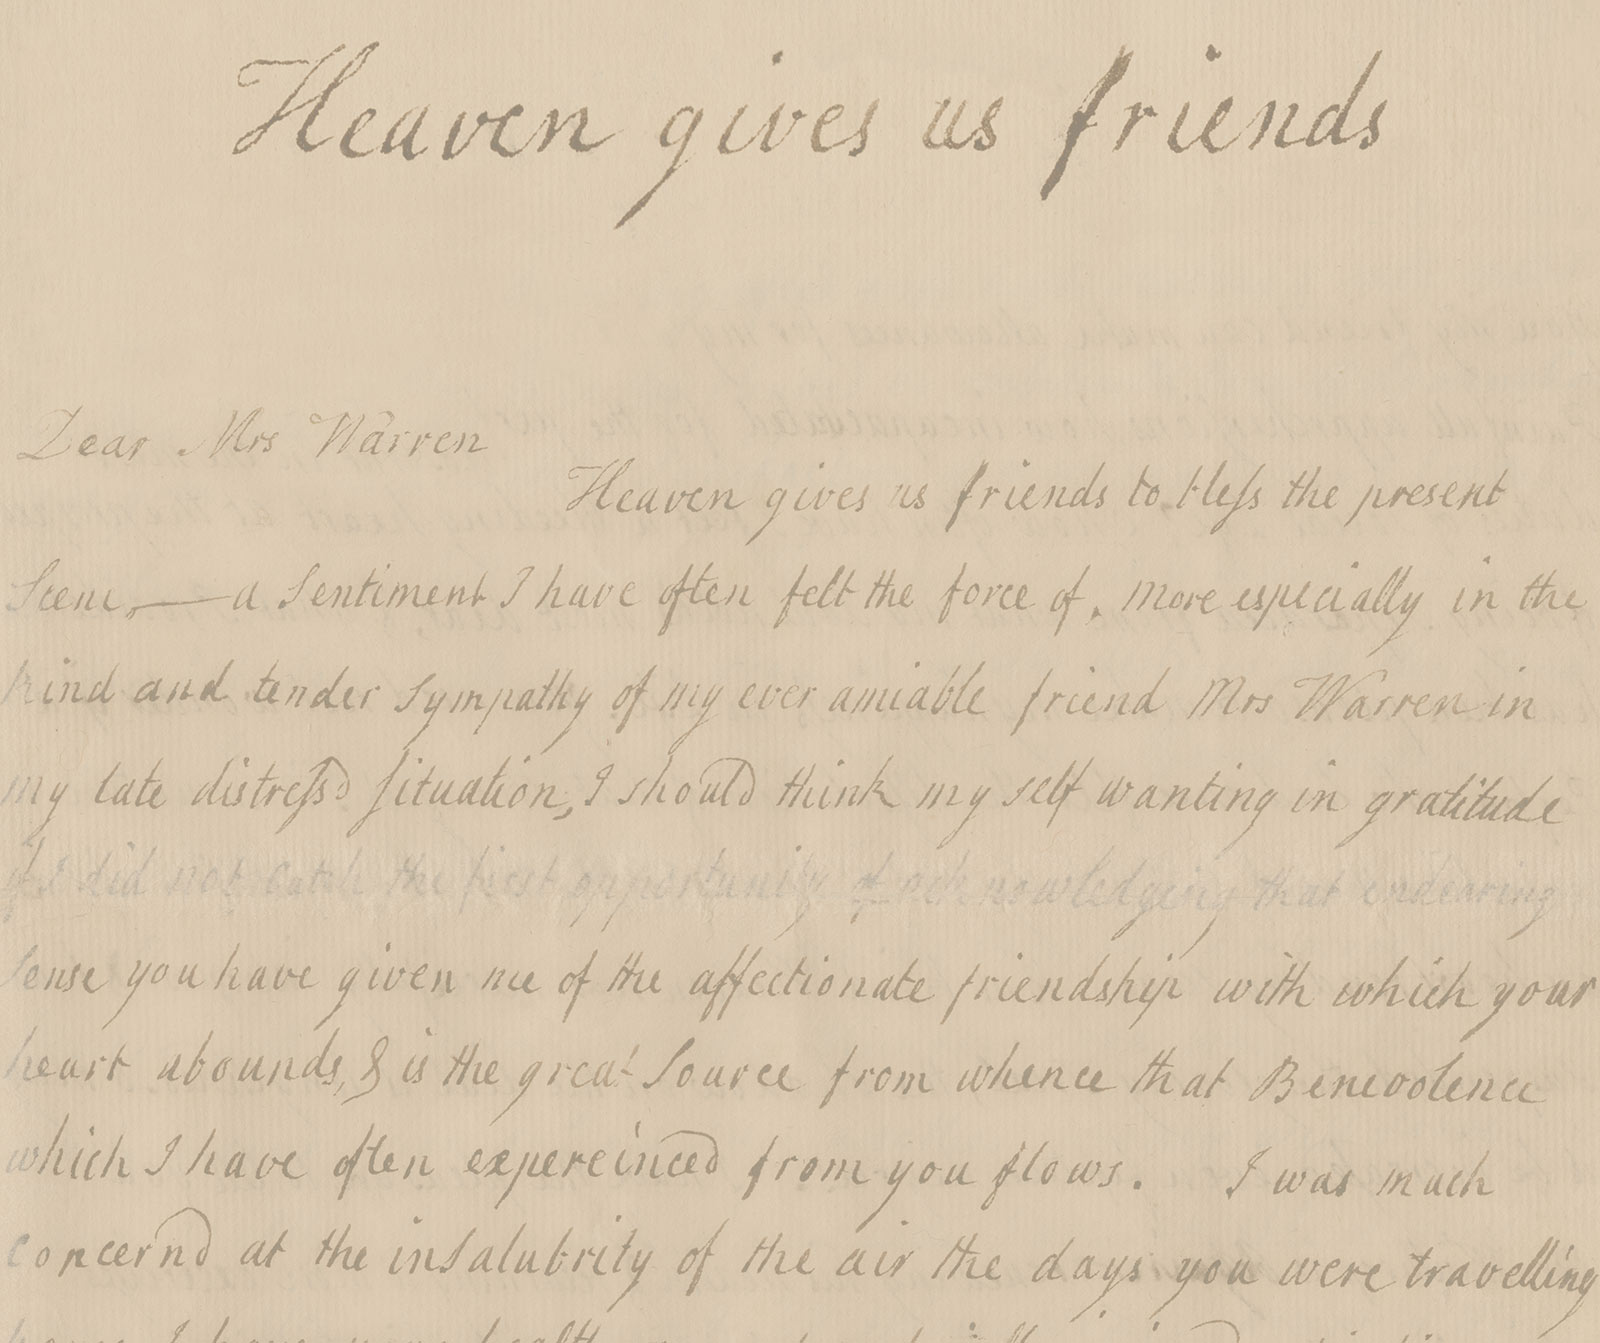 Heaven gives us friends
Dear Mrs Warren
Heaven gives us friends to bleſs the present
Scene,—a Sentiment I have often felt the force of, more especially in the
kind and tender sympathy of my ever amiable friend Mrs Warren in
my late distreſsd situation, I should think my self wanting in gratitude
if I did not catch the first opportunity of acknowledging that endearing
sense you have given me of the affectionate friendship with which your
heart abounds, & is the great Source from whence that Benevolence
which I have often expereinced from you flows. I was much
concernd at the insalubrity of the air the days you were travelling